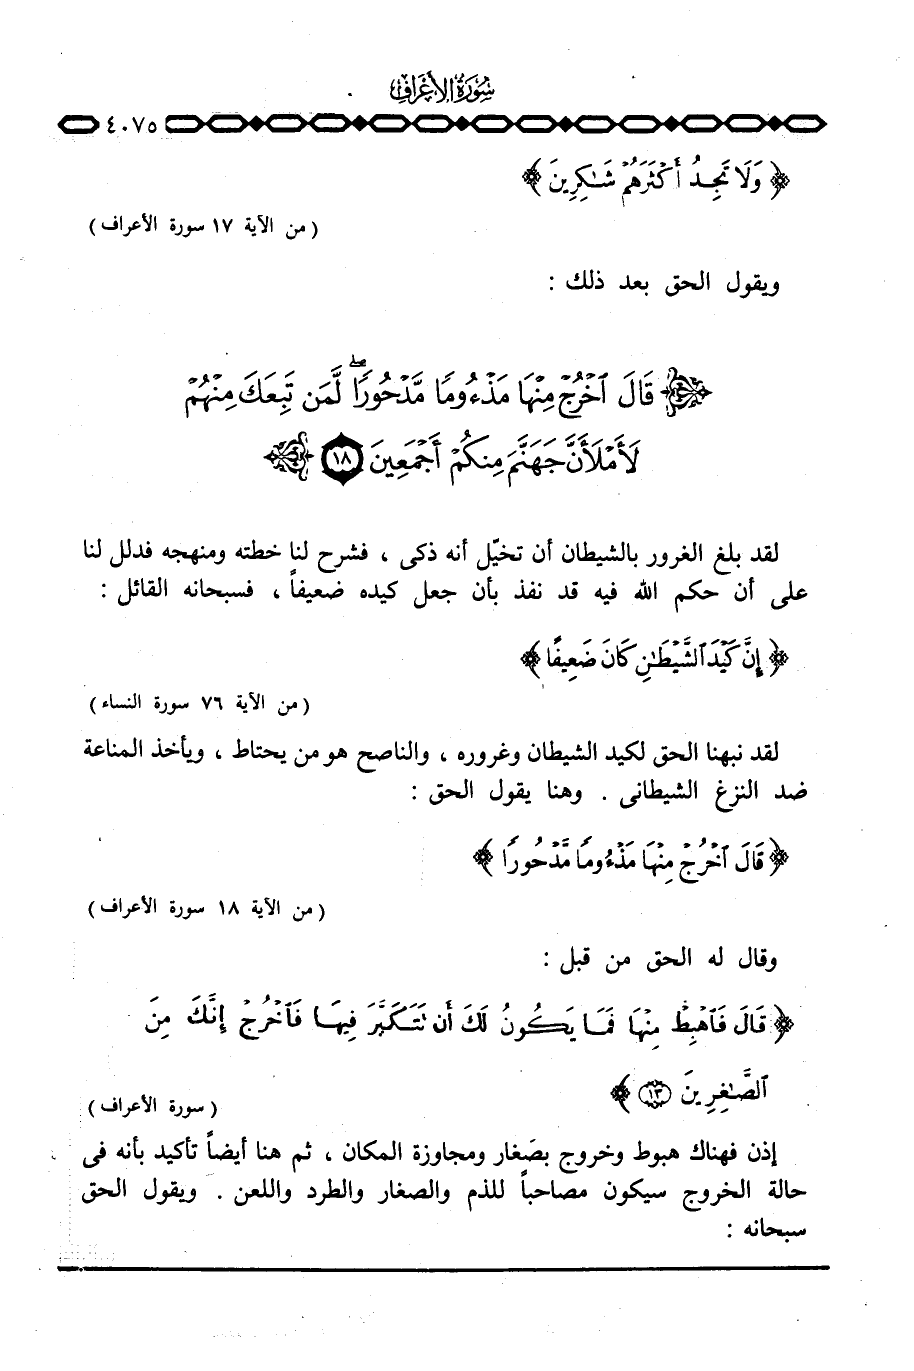 سُورَةُ الأَعْرَافِ
٤٠٧٥
﴿ وَلَا تَجِدُ أَكْثَرَهُمْ شَـٰكِرِينَ ﴾
( من الآية ١٧ سورة الأعراف )
ويقول الحق بعد ذلك :
﴿ قَالَ ٱخْرُجْ مِنْهَا مَذْءُومًا مَّدْحُورًا ۖ لَّمَن تَبِعَكَ مِنْهُمْ
لَأَمْلَأَنَّ جَهَنَّمَ مِنكُمْ أَجْمَعِينَ ١٨ ﴾
لقد بلغ الغرور بالشيطان أن تخيّل أنه ذكى ، فشرح لنا خطته ومنهجه فدلل لنا
على أن حكم الله فيه قد نفذ بأن جعل كيده ضعيفاً ، فسبحانه القائل :
﴿ إِنَّ كَيْدَ ٱلشَّيْطَـٰنِ كَانَ ضَعِيفًا ﴾
( من الآية ٧٦ سورة النساء )
لقد نبهنا الحق لكيد الشيطان وغروره ، والناصح هو من يحتاط ، ويأخذ المناعة
ضد النزغ الشيطانى . وهنا يقول الحق :
﴿ قَالَ ٱخْرُجْ مِنْهَا مَذْءُومًا مَّدْحُورًا ﴾
( من الآية ١٨ سورة الأعراف )
وقال له الحق من قبل :
﴿ قَالَ فَٱهْبِطْ مِنْهَا فَمَا يَكُونُ لَكَ أَن تَتَكَبَّرَ فِيهَا فَٱخْرُجْ إِنَّكَ مِنَ
ٱلصَّـٰغِرِينَ ١٣ ﴾
( سورة الأعراف )
إذن فهناك هبوط وخروج بصَغار ومجاوزة المكان ، ثم هنا أيضاً تأكيد بأنه فى
حالة الخروج سيكون مصاحباً للذم والصغار والطرد واللعن . ويقول الحق
سبحانه :